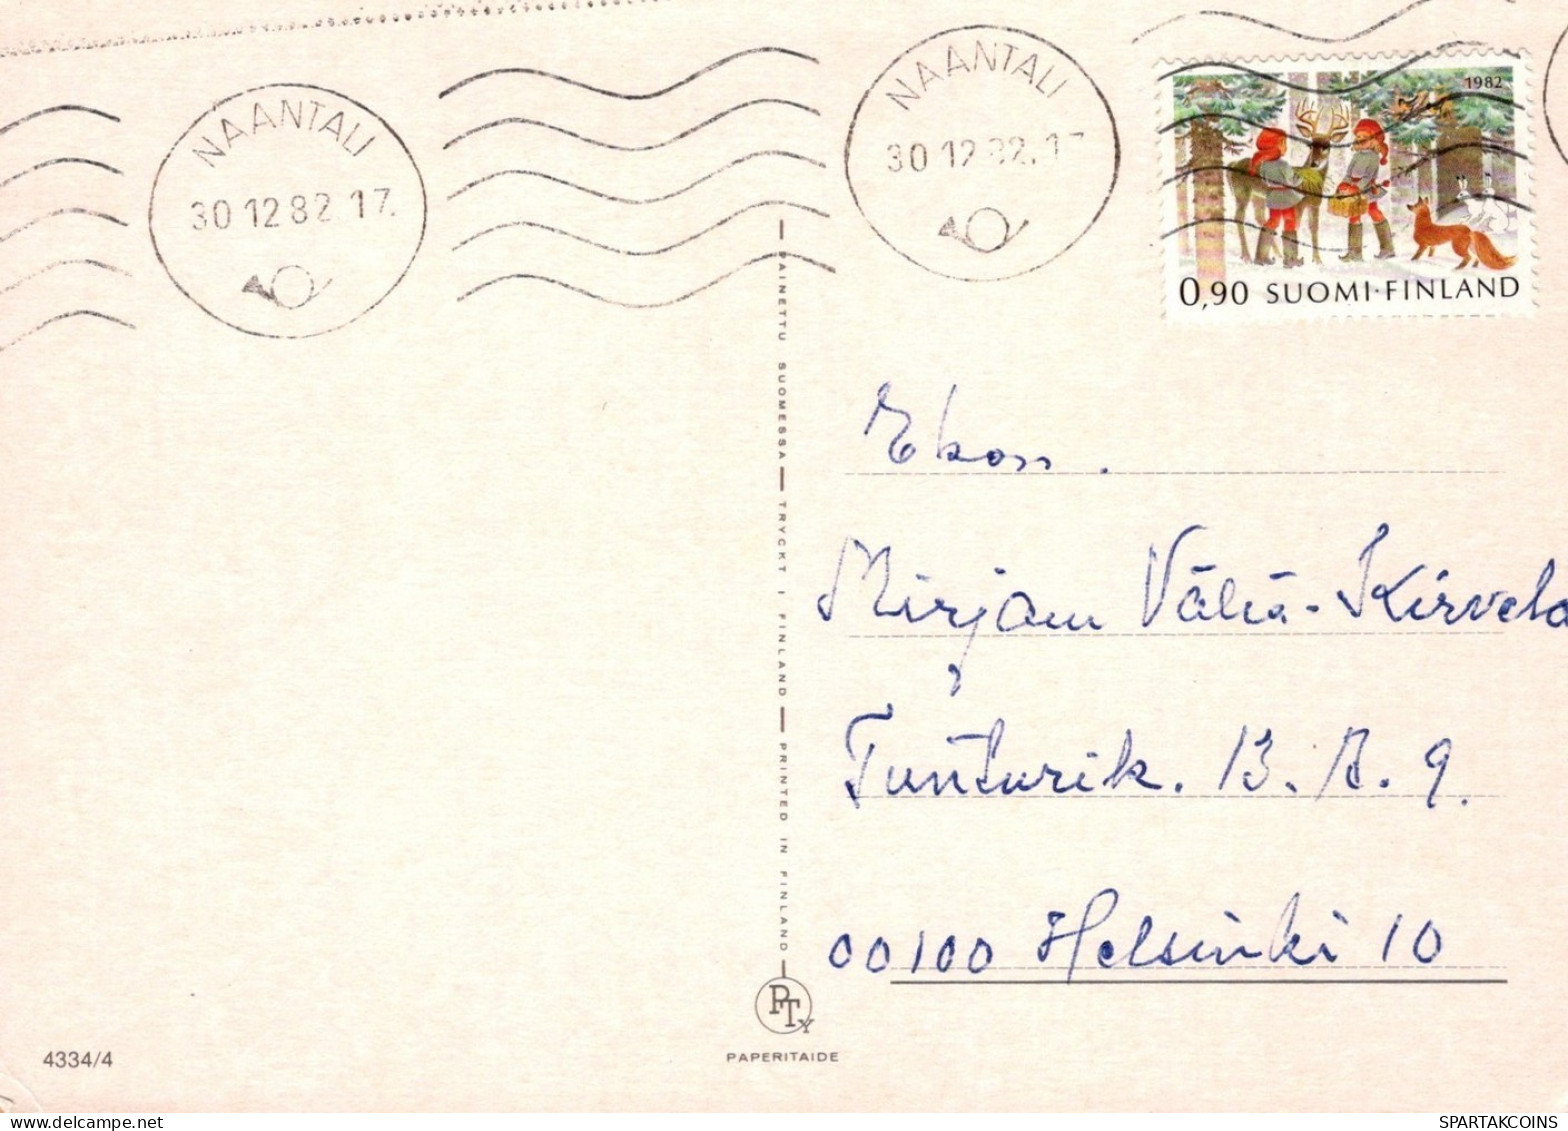 NAANTALI
30 12 82 17.
NAANTALI
30 12 82.17
1982
0,90 SUOMI·FINLAND
PAINETTU SUOMESSA — TRYCKT I FINLAND — PRINTED IN FINLAND
Ekon.
Mirjam Väliä-Kirvelä
Tunturik. 13. A. 9.
00100 Helsinki 10
PTy
PAPERITAIDE
4334/4
SPARTAKCOINS